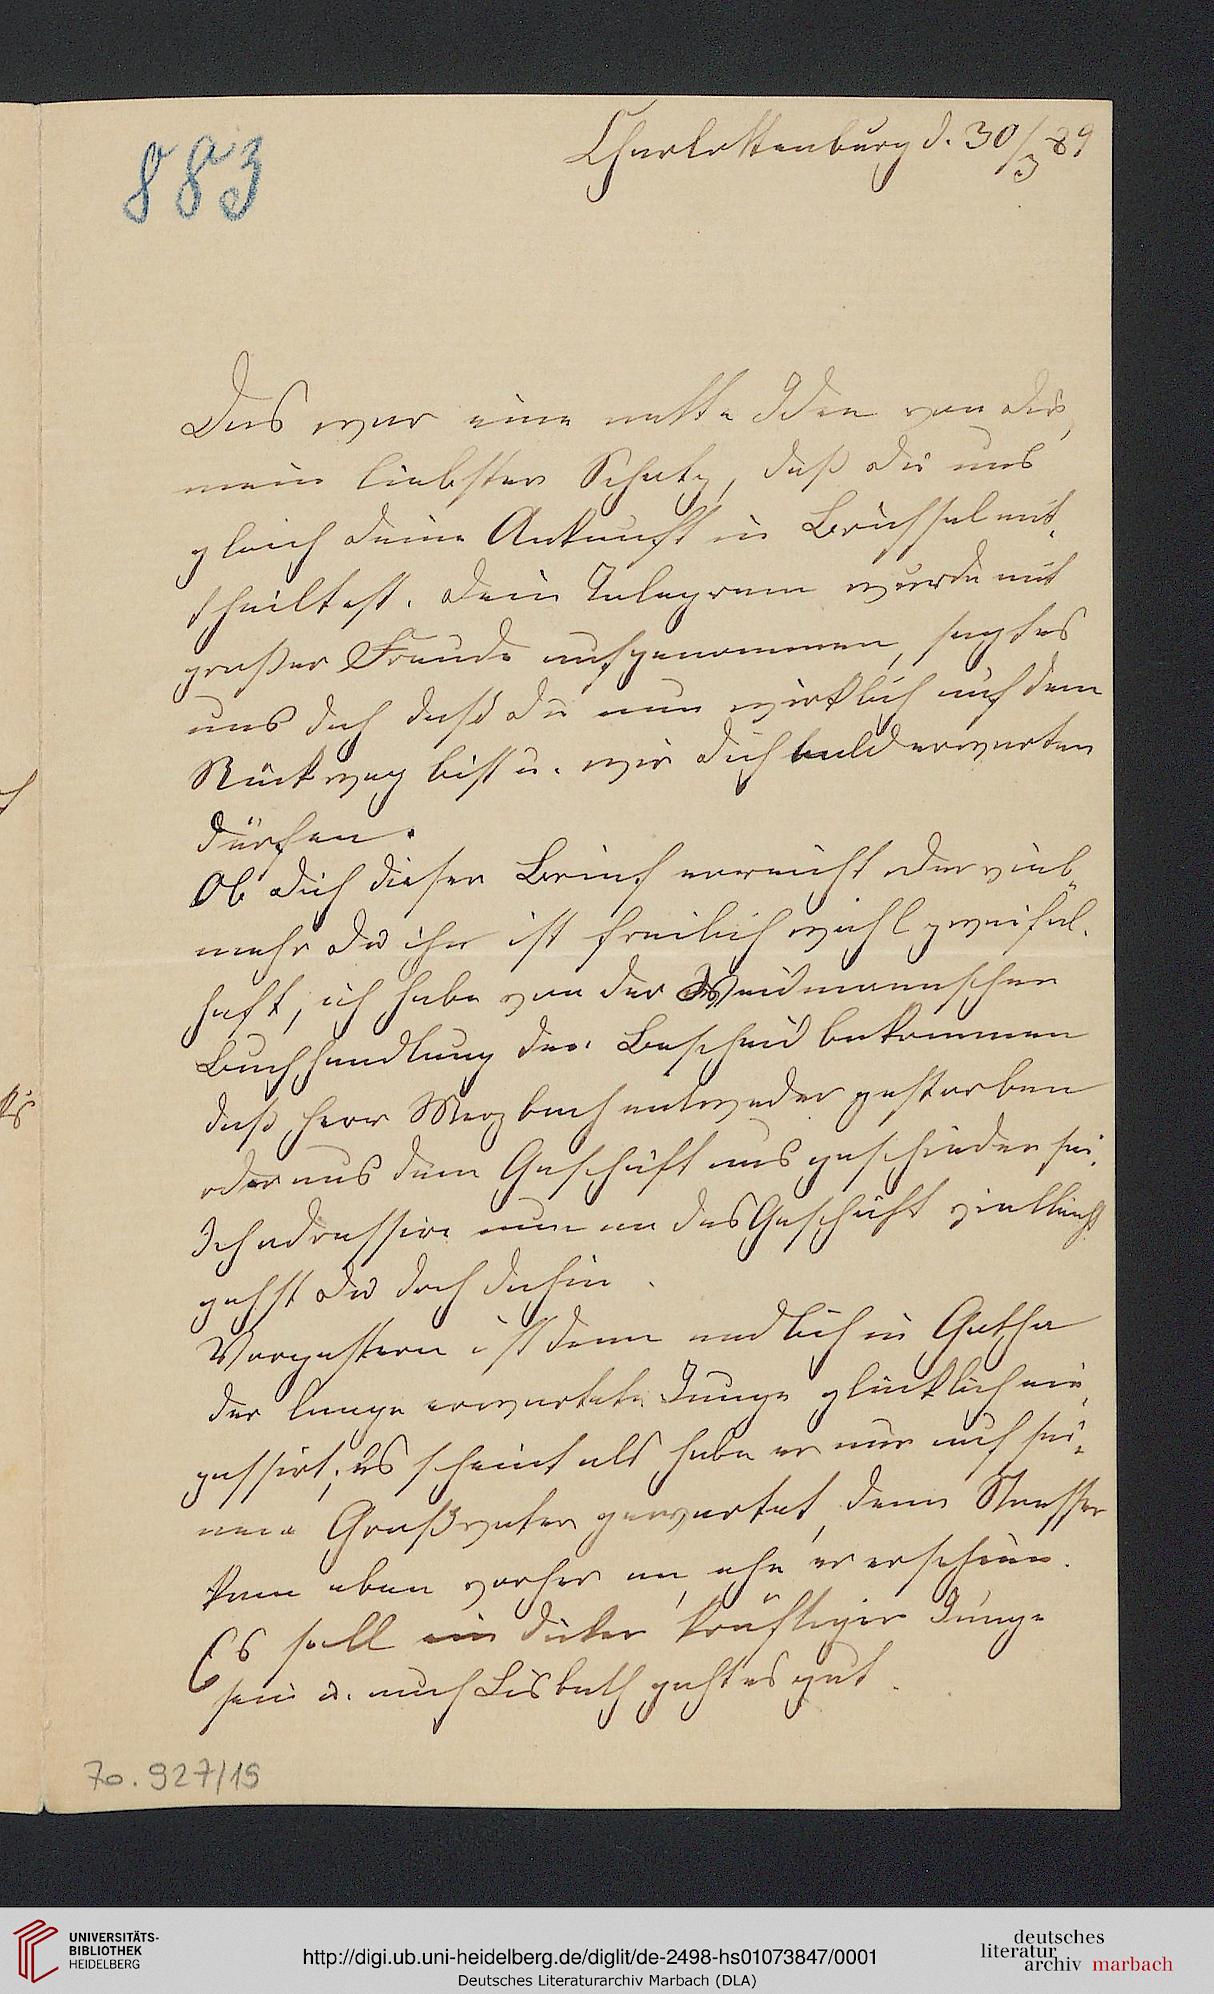 883
Charlottenburg d. 30/3 89
Das war eine nette Idee von Dir,
mein liebster Schatz, daß Du uns
gleich Deine Ankunft in Brüssel mit-
theiltest. Dein Telegram wurde mit
großer Freude aufgenommen, sagt es
uns doch daß Du nun wirklich auf dem
Rückweg bist u. wir Dich bald erwarten
dürfen.
Ob Dich dieser Brief erreicht oder viel-
mehr Du ihn ist freilich wohl zweifel-
haft, ich habe von der Weidmannschen
Buchhandlung den Bescheid bekommen
daß Herr Merzbach entweder gestorben
oder aus dem Geschäft ausgeschieden sei.
Ich adressire nun an das Geschäft vielleicht
gehst Du doch dahin.
Vorgestern ist denn endlich in Gotha
der lange erwartete Junge glücklich ein-
passirt; es scheint als habe er nur auf sei-
nen Großvater gewartet, denn Strasser
kam eben vorher an, ehe er erschien.
Es soll ein dicker kräftiger Junge
sein u. auch Lisbeth geht es gut.
70.927/19
UNIVERSITÄTS-
BIBLIOTHEK
HEIDELBERG
http://digi.ub.uni-heidelberg.de/diglit/de-2498-hs01073847/0001
Deutsches Literaturarchiv Marbach (DLA)
deutsches
literatur
archiv marbach